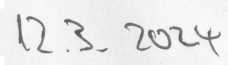 12.3. 2024